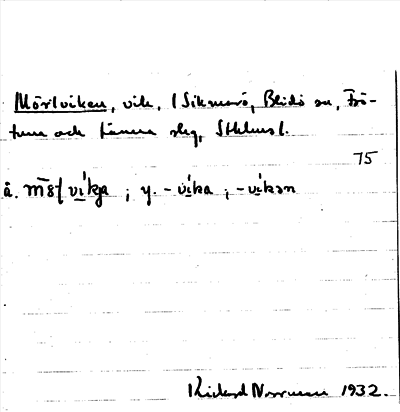 Mörtviken, vik, i Siksmarö, Blidö sn, Frö-
tuna och Länna slg, Sthlms l.
75
å. m8ʃ vi̱kja ; y. -vi̱ka ; -vi̱kən
Rickard Norrman 1932.